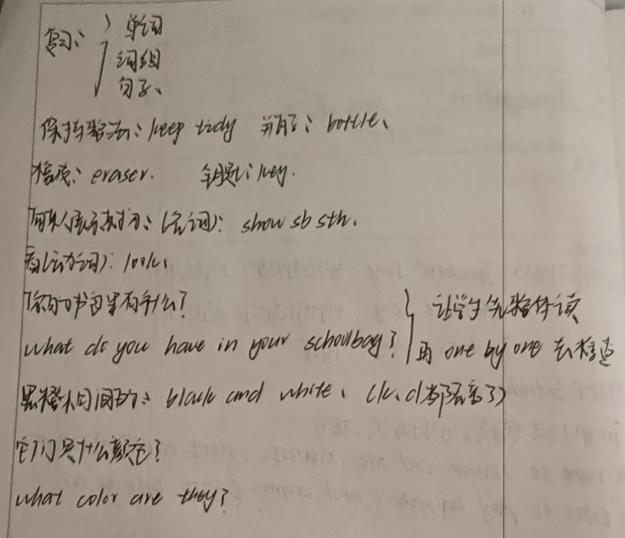 复习: 单词
词组
句子、
保持整洁: keep tidy 瓶子: bottle、
橡皮: eraser. 钥匙: key.
向某人展示某物: (名词): show sb sth.
看(动词): look.
你的书包里有什么? 让学生先整体读
what do you have in your schoolbag? 再 one by one 去检查
相间的: black and white、(k、d都隔离了)
它们是什么颜色?
what color are they?